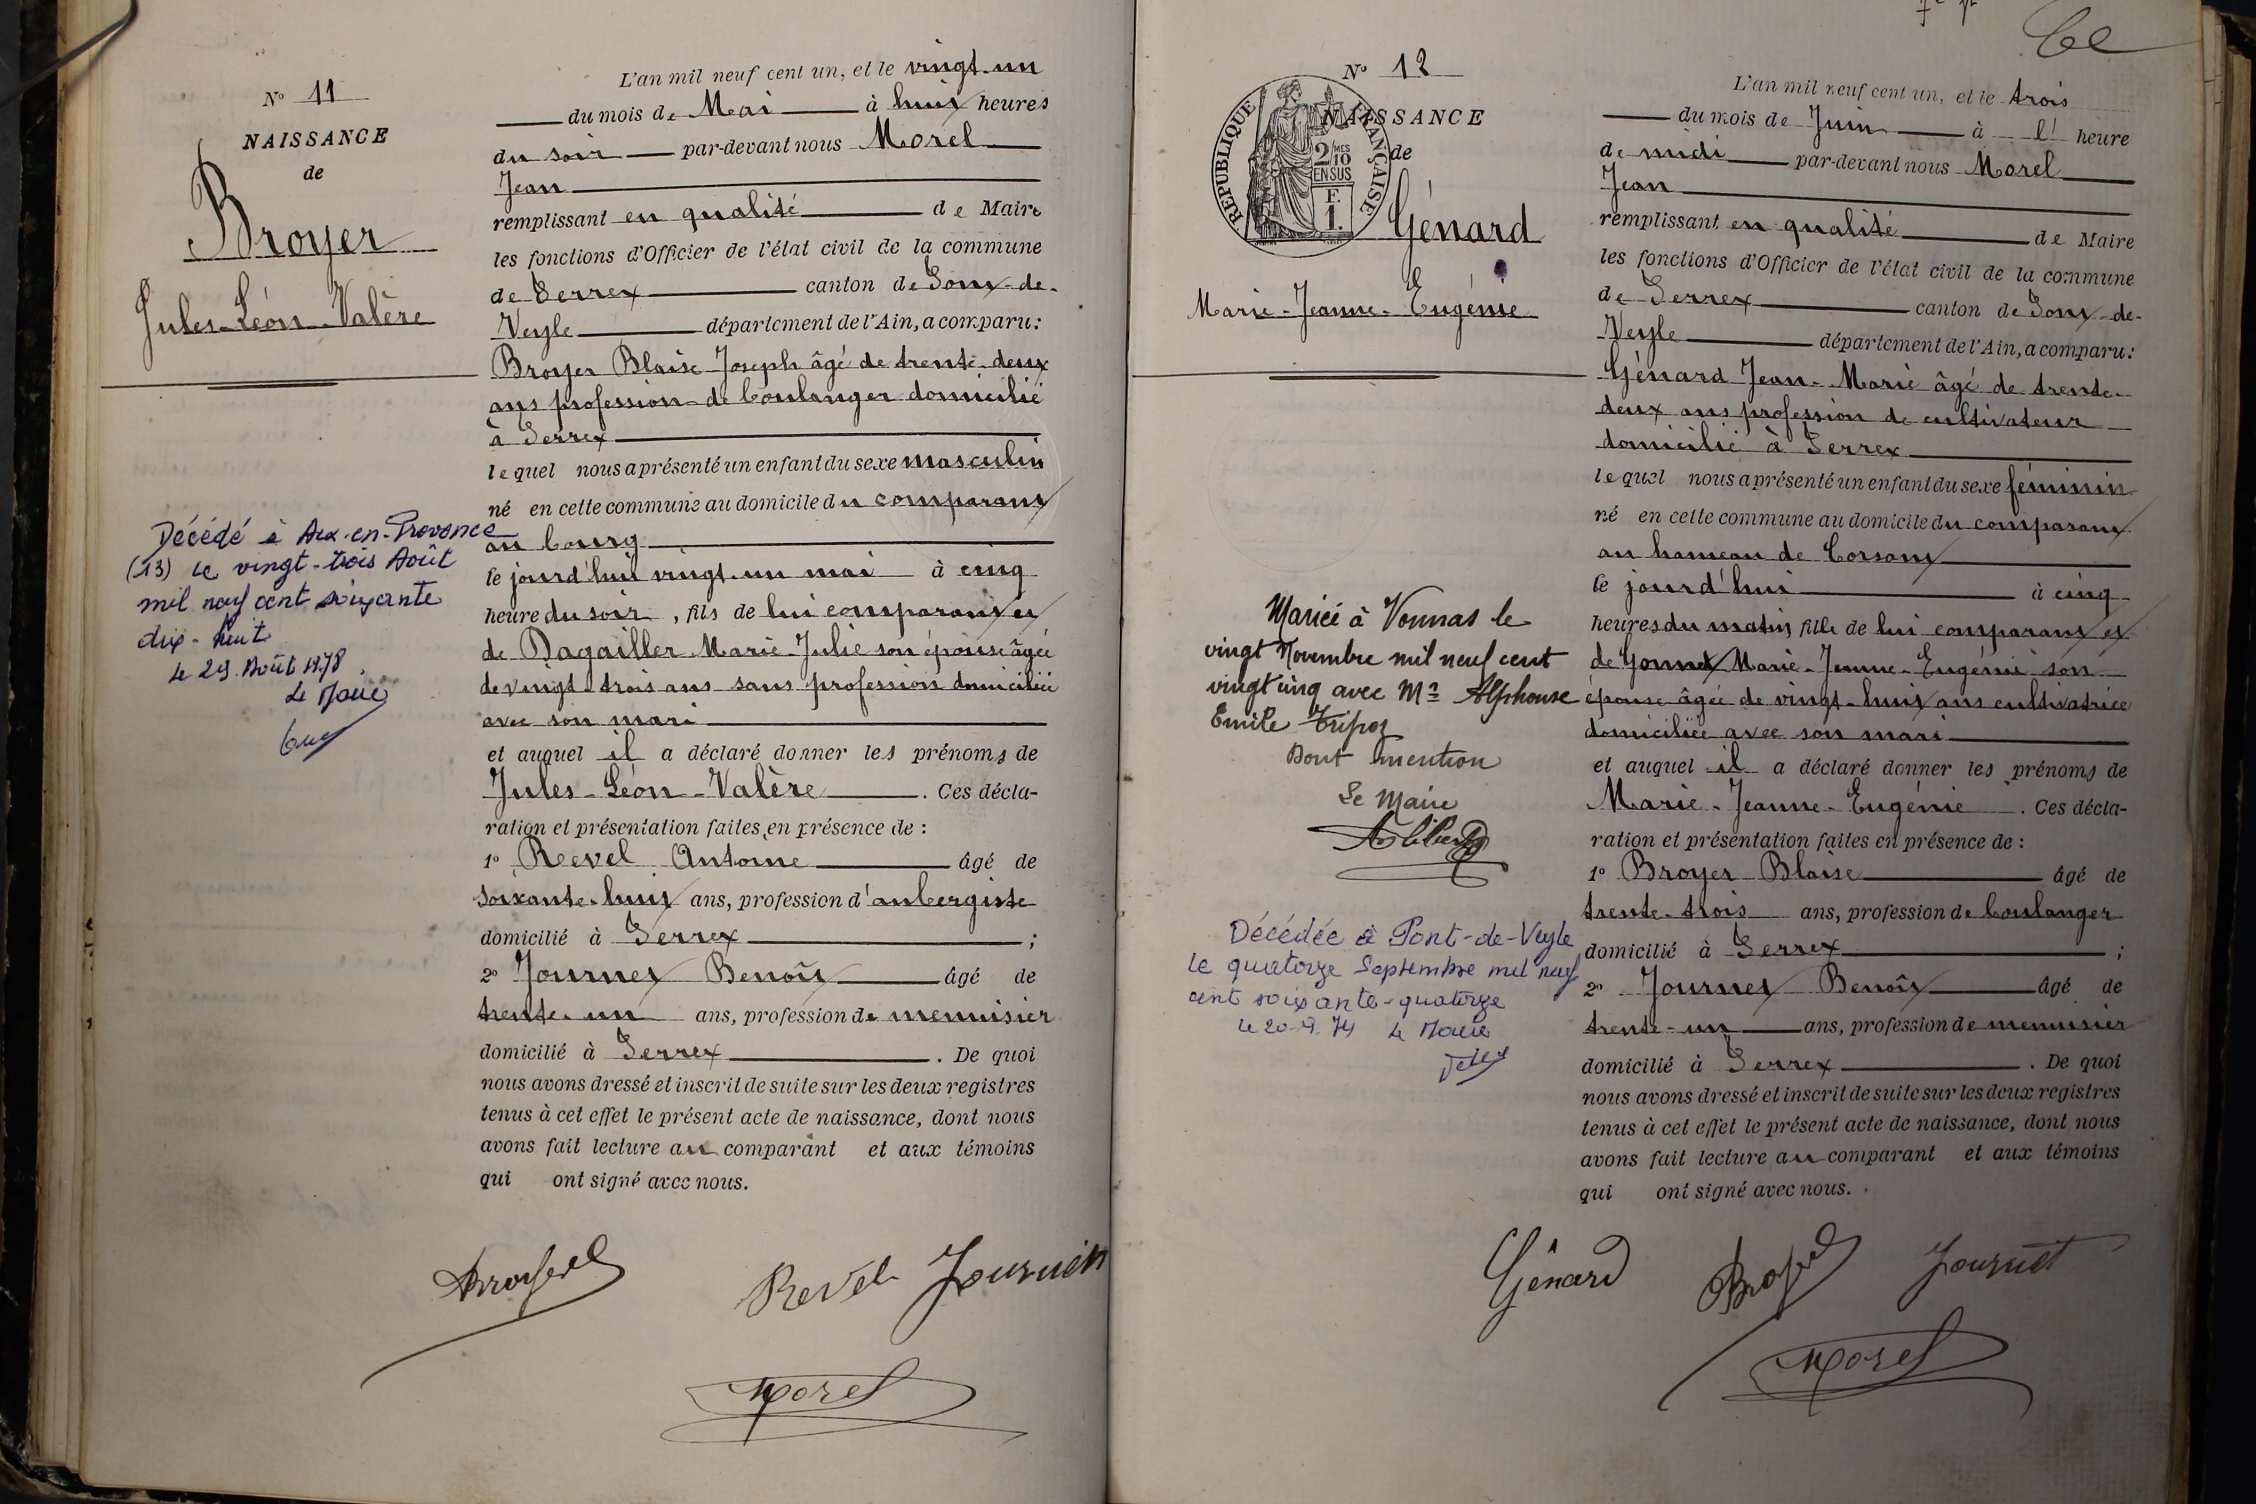 N° 11
NAISSANCE
de
Broyer
Jules-Léon-Valère
Décédé à Aix-en-Provence
(13) le vingt-trois Août
mil neuf cent soixante
dix-huit
le 29 Août 1978
Le Maire
L'an mil neuf cent un, et le vingt-un
du mois de Mai à huit heures
du soir par-devant nous Morel
Jean
remplissant en qualité de Maire
les fonctions d'Officier de l'état civil de la commune
de Perrex canton de Pont-de-
Veyle département de l'Ain, a comparu:
Broyer Blaise-Joseph âgé de trente-deux
ans profession de boulanger domicilié
à Perrex
lequel nous a présenté un enfant du sexe masculin
né en cette commune au domicile du comparant
au bourg
le jourd'hui vingt-un mai à cinq
heure du soir, fils de lui comparant et
de Dagailler Marie-Julie son épouse âgée
de vingt-trois ans sans profession domiciliée
avec son mari
et auquel il a déclaré donner les prénoms de
Jules-Léon-Valère. Ces décla-
ration et présentation faites en présence de :
1° Revel Antoine âgé de
soixante-huit ans, profession d'aubergiste
domicilié à Perrex ;
2° Journet Benoît âgé de
trente-un ans, profession de menuisier
domicilié à Perrex. De quoi
nous avons dressé et inscrit de suite sur les deux registres
tenus à cet effet le présent acte de naissance, dont nous
avons fait lecture au comparant et aux témoins
qui ont signé avec nous.
Broyer Revel Journet
Morel
N° 12
NAISSANCE
de
RÉPUBLIQUE FRANÇAISE
2/10 MES
EN SUS
F.
1.
Génard
Marie-Jeanne-Eugénie
Mariée à Vonnas le
vingt Novembre mil neuf cent
vingt cinq avec Mr Alphonse
Emile Tripoz
Dont mention
Le Maire
Décédée à Pont-de-Veyle
le quatorze Septembre mil neuf
cent soixante-quatorze
le 20.9.74 Le Maire
L'an mil neuf cent un, et le trois
du mois de Juin à l' heure
de midi par-devant nous Morel
Jean
remplissant en qualité de Maire
les fonctions d'Officier de l'état civil de la commune
de Perrex canton de Pont-de-
Veyle département de l'Ain, a comparu:
Génard Jean-Marie âgé de trente-
deux ans profession de cultivateur
domicilié à Perrex
lequel nous a présenté un enfant du sexe féminin
né en cette commune au domicile du comparant
au hameau de Corsant
le jourd'hui à cinq
heures du matin, fille de lui comparant et
de Gonnet Marie-Jeanne-Eugénie son
épouse âgée de vingt-huit ans cultivatrice
domiciliée avec son mari
et auquel il a déclaré donner les prénoms de
Marie-Jeanne-Eugénie. Ces décla-
ration et présentation faites en présence de :
1° Broyer Blaise âgé de
trente-trois ans, profession de boulanger
domicilié à Perrex ;
2° Journet Benoît âgé de
trente-un ans, profession de menuisier
domicilié à Perrex. De quoi
nous avons dressé et inscrit de suite sur les deux registres
tenus à cet effet le présent acte de naissance, dont nous
avons fait lecture au comparant et aux témoins
qui ont signé avec nous.
Génard Broyer Journet
Morel